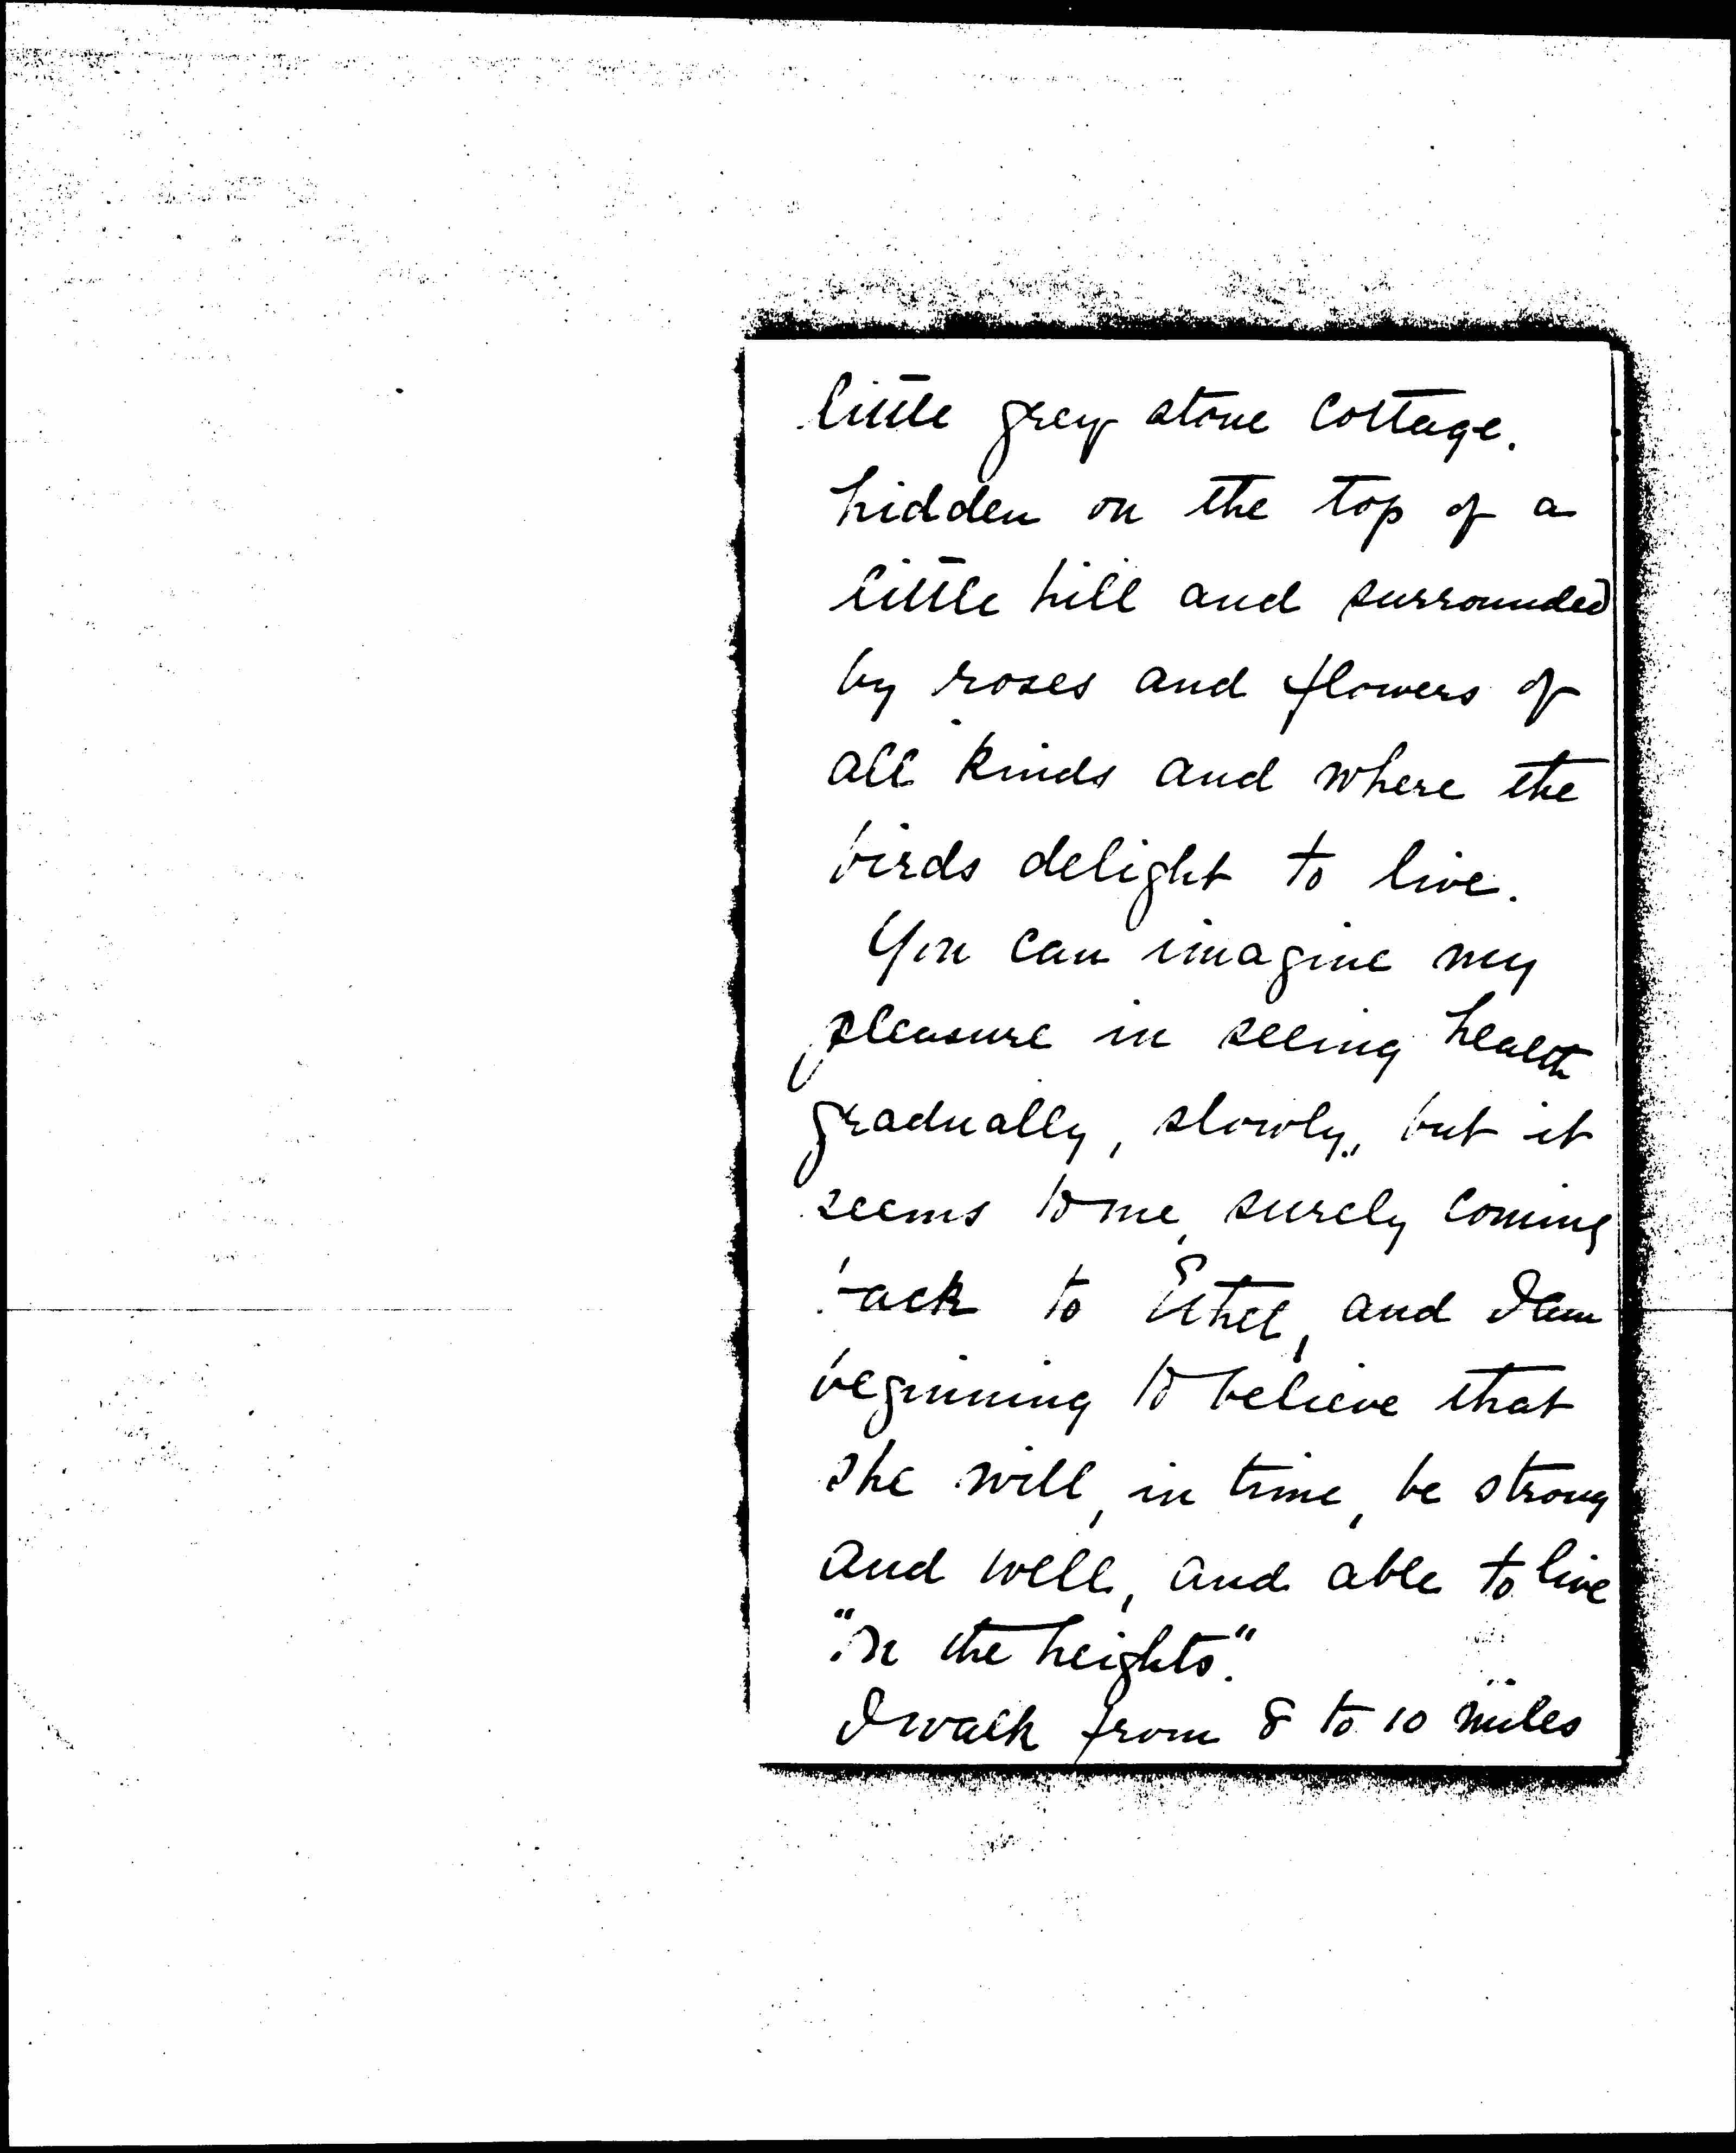 little grey stone cottage.
hidden on the top of a
little hill and surrounded
by roses and flowers of
all kinds and where the
birds delight to live.
You can imagine my
pleasure in seeing health
gradually, slowly, but it
seems to me, surely coming
back to Ethel, and I am
beginning to believe that
she will, in time, be strong
and well, and able to live
"on the heights."
I walk from 8 to 10 miles